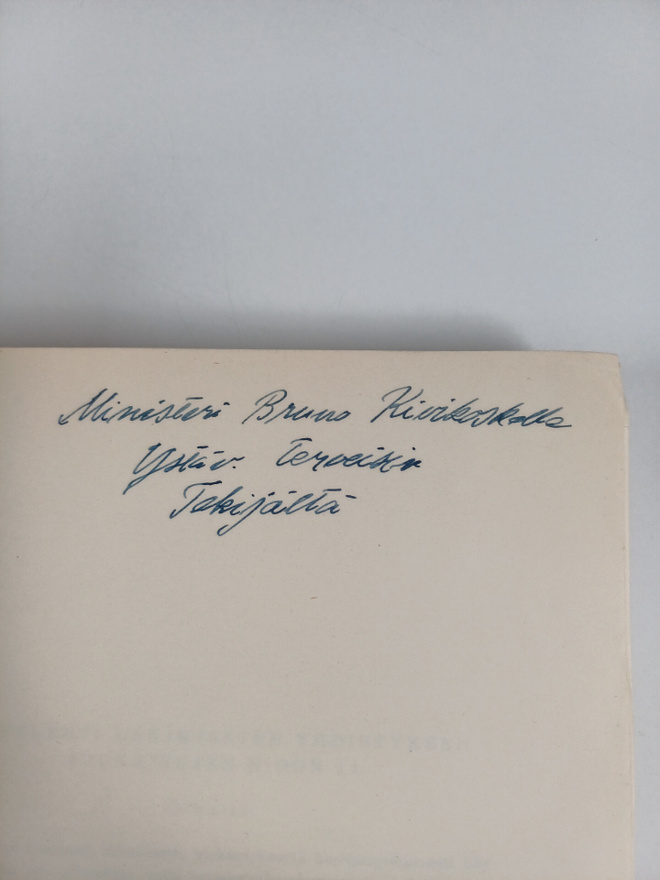 Ministeri Bruno Kivikoskelle
Ystäv. terveisin
Tekijältä